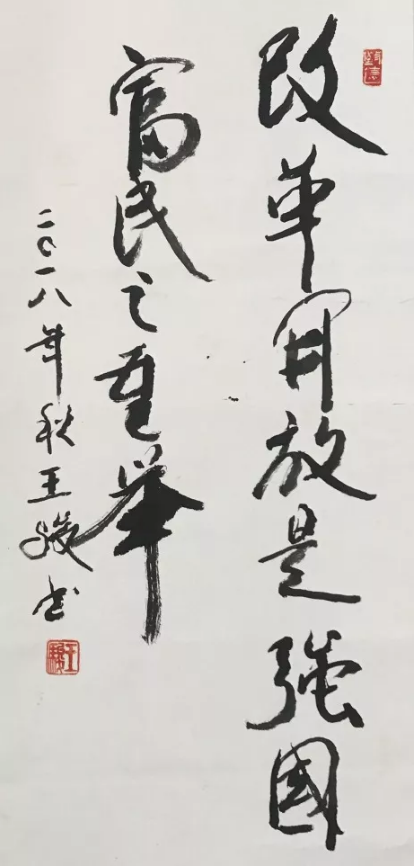 改革開放是強國
富民之重举
二〇一八年秋王駿书